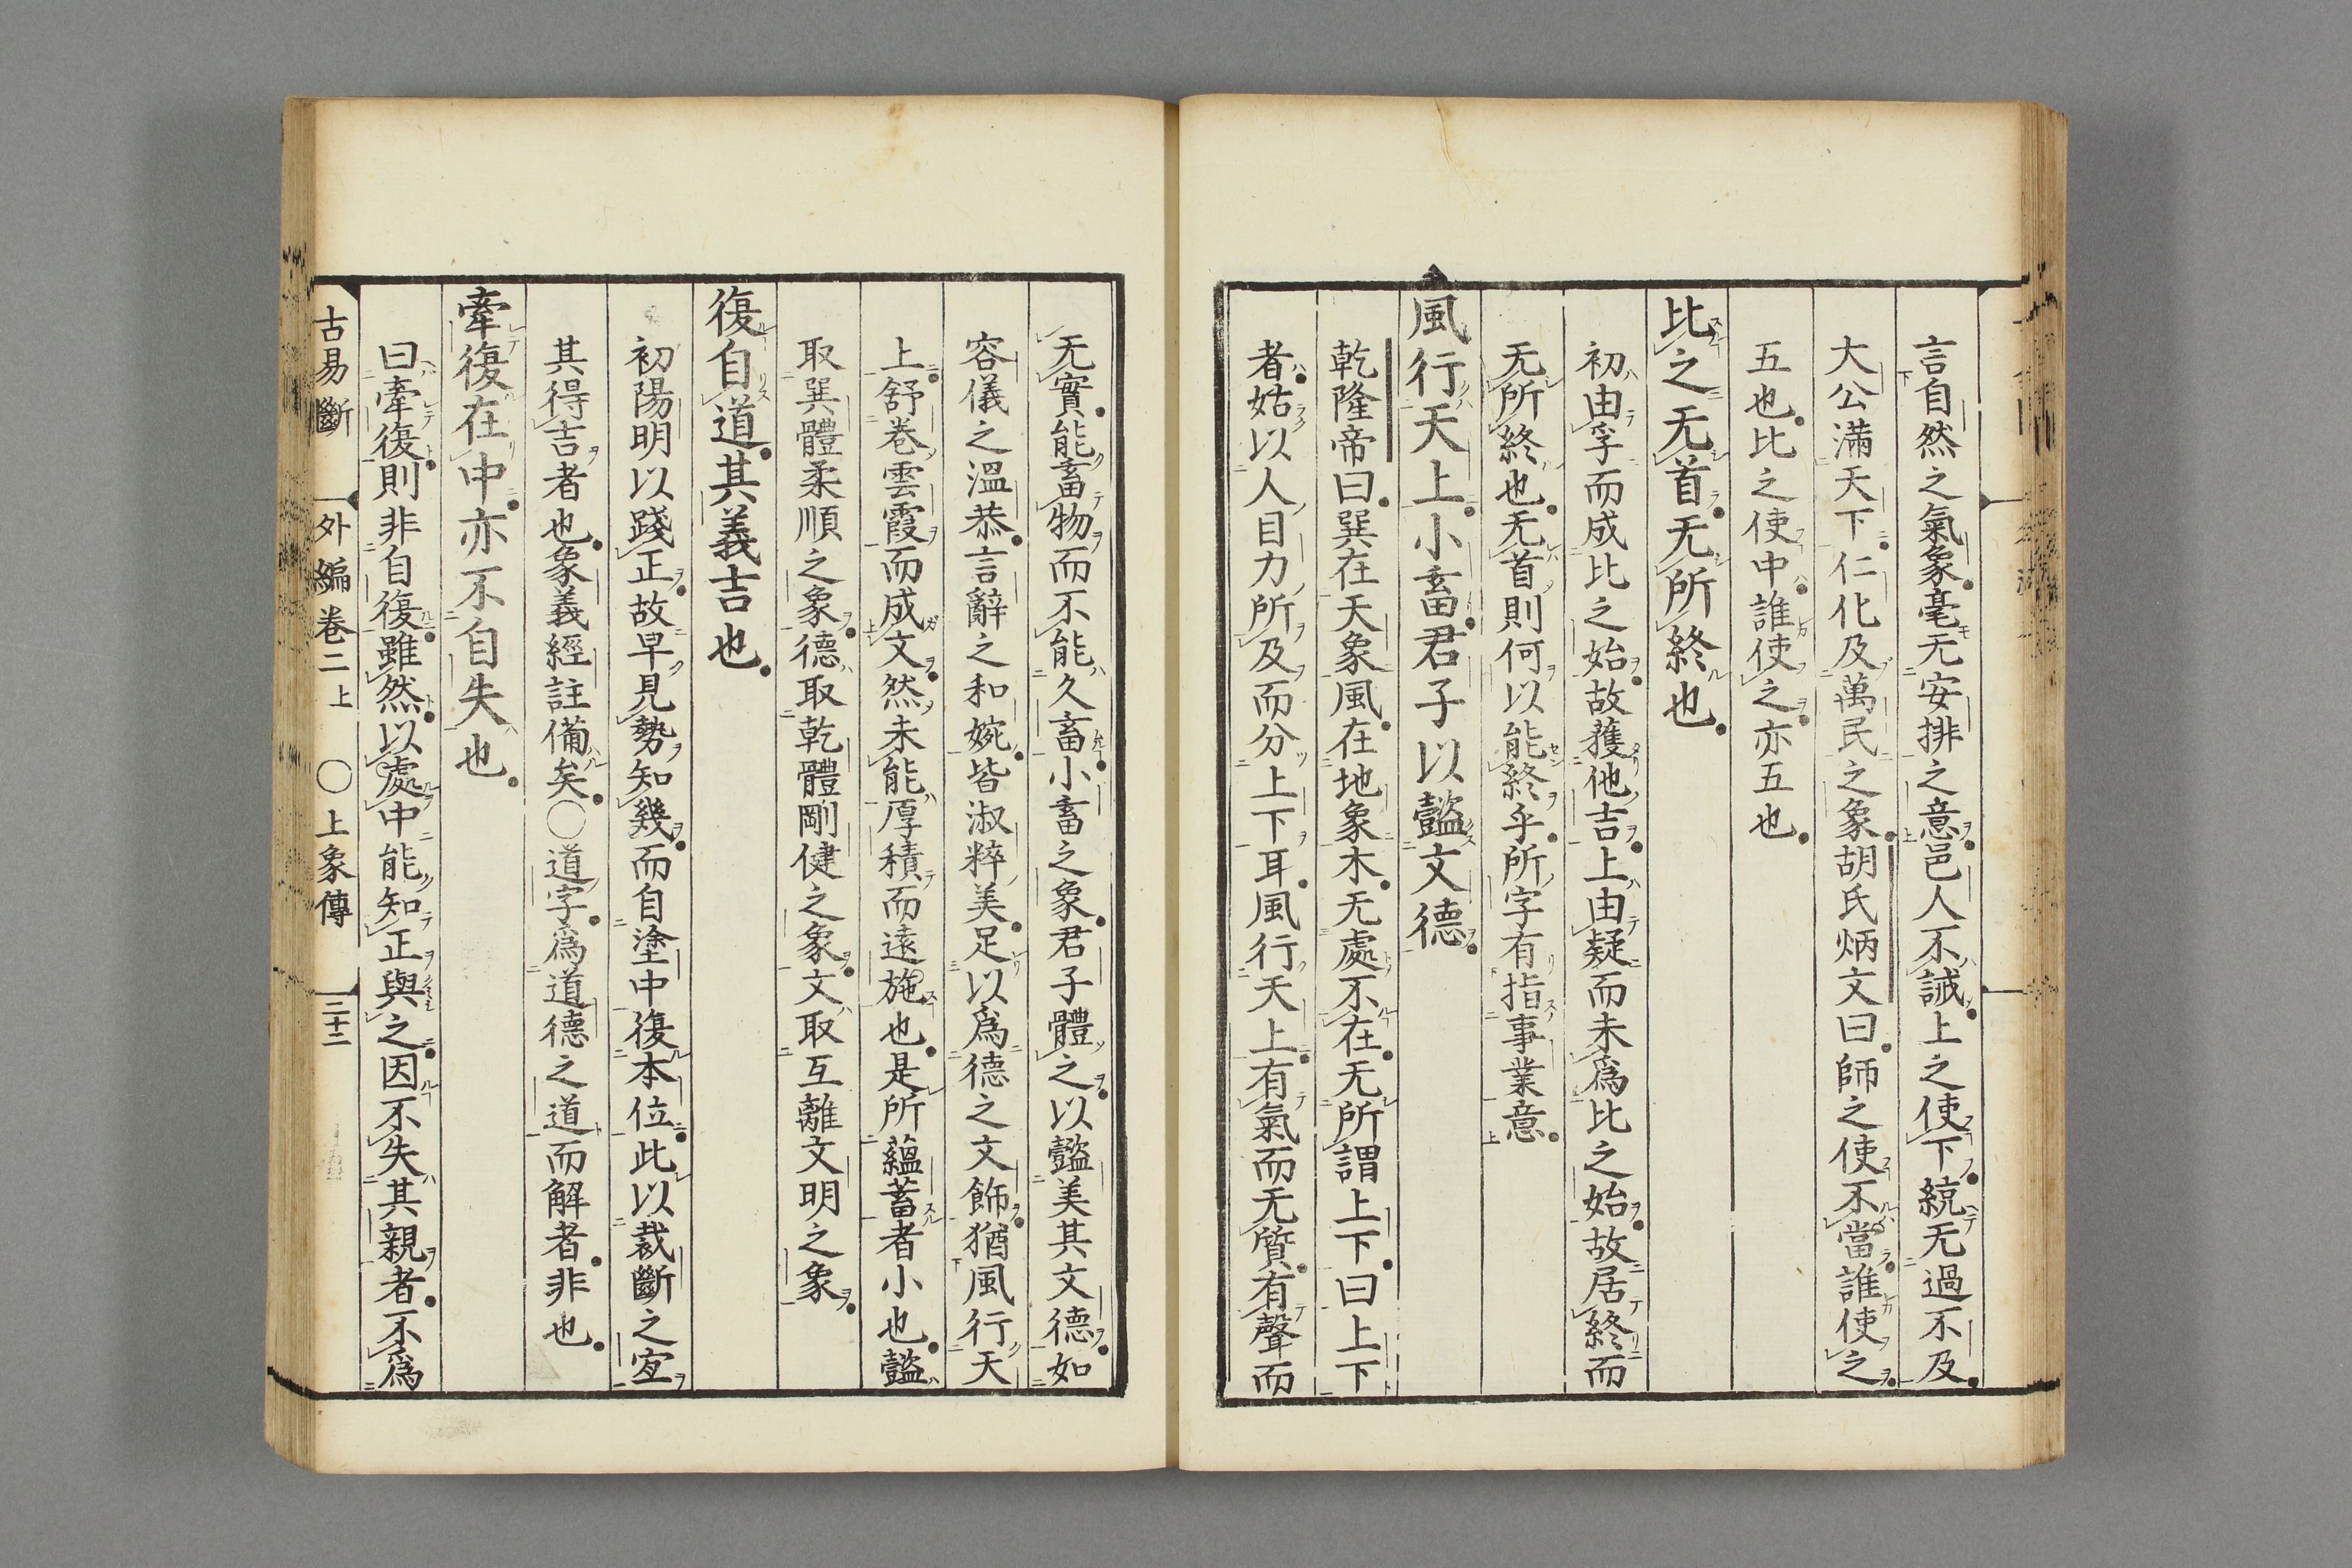 言自然之氣象毫无安排之意邑人不誡上之使下綂无過不及
大公滿天下仁化及萬民之象胡氏炳文曰師之使不當誰使之
五也比之使中誰使之亦五也
比之无首无所終也
初由孚而成比之始故獲他吉上由疑而未爲比之始故居終而
无所終也无首則何以能終乎所字有指事業意
風行天上小畜君子以懿文德
乾隆帝曰巽在天象風在地象木无處不在无所謂上下曰上下
者姑以人目力所及而分上下耳風行天上有氣而无質有聲而
无實能畜物而不能久畜小畜之象君子體之以懿美其文德如
容儀之溫恭言辭之和婉皆淑粹美足以爲德之文飾猶風行天
上舒卷雲霞而成文然未能厚積而遠施也是所蘊蓄者小也懿
取巽體柔順之象德取乾體剛健之象文取互離文明之象
復自道其義吉也
初陽明以踐正故早見勢知幾而自塗中復本位此以裁斷之宐
其得吉者也象義經註備矣○道字爲道德之道而解者非也
牽復在中亦不自失也
曰牽復則非自復雖然以處中能知正與之因不失其親者不爲
古易斷 外編卷二上 ○上象傳 二十二